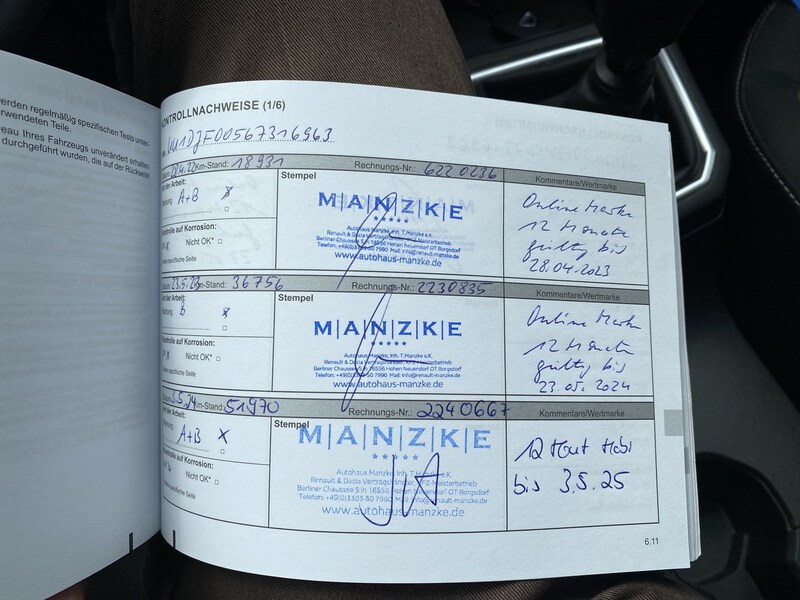 werden regelmäßig spezifischen Tests unter-
verwendeten Teile.
eau Ihres Fahrzeugs unverändert erhalten
durchgeführt wurden, die auf der Rückseite
KONTROLLNACHWEISE (1/6)
Km-Stand: 18931 Rechnungs-Nr.: 6220236
der Arbeit:
A+B x
Stempel
Kommentare/Wertmarke
M|A|N|Z|K|E
Autohaus Manzke, Inh. T.Manzke e.K.
Renault & Dacia Vertragshändler, KFZ-Meisterbetrieb
Berliner Chaussee 5 in 16556 Hohen Neuendorf OT Borgsdorf
www.autohaus-manzke.de
Online Marke
12 Monate
gültig bis
28.04.2023
Kontrolle auf Korrosion:
Nicht OK*
siehe spezifische Seite
23.5.23 Km-Stand: 36756 Rechnungs-Nr.: 2230835
der Arbeit:
B x
Stempel
Kommentare/Wertmarke
M|A|N|Z|K|E
Autohaus Manzke, Inh. T.Manzke e.K.
Renault & Dacia Vertragshändler, KFZ-Meisterbetrieb
Berliner Chaussee 5 in 16556 Hohen Neuendorf OT Borgsdorf
Telefon: +49(0)3303-50 7990 Mail: info@renault-manzke.de
www.autohaus-manzke.de
Online Marke
12 Monate
gültig bis
23.05.2024
Kontrolle auf Korrosion:
Nicht OK*
siehe spezifische Seite
3.5.24 Km-Stand: 51970 Rechnungs-Nr.: 2240667
der Arbeit:
A+B x
Stempel
Kommentare/Wertmarke
M|A|N|Z|K|E
Autohaus Manzke, Inh. T.Manzke e.K.
Renault & Dacia Vertragshändler, KFZ-Meisterbetrieb
Berliner Chaussee 5 in 16556 Hohen Neuendorf OT Borgsdorf
Telefon: +49(0)3303-50 7990 Mail: info@renault-manzke.de
www.autohaus-manzke.de
12 Mont Mobi
bis 3.5.25
Kontrolle auf Korrosion:
Nicht OK*
siehe spezifische Seite
6.11